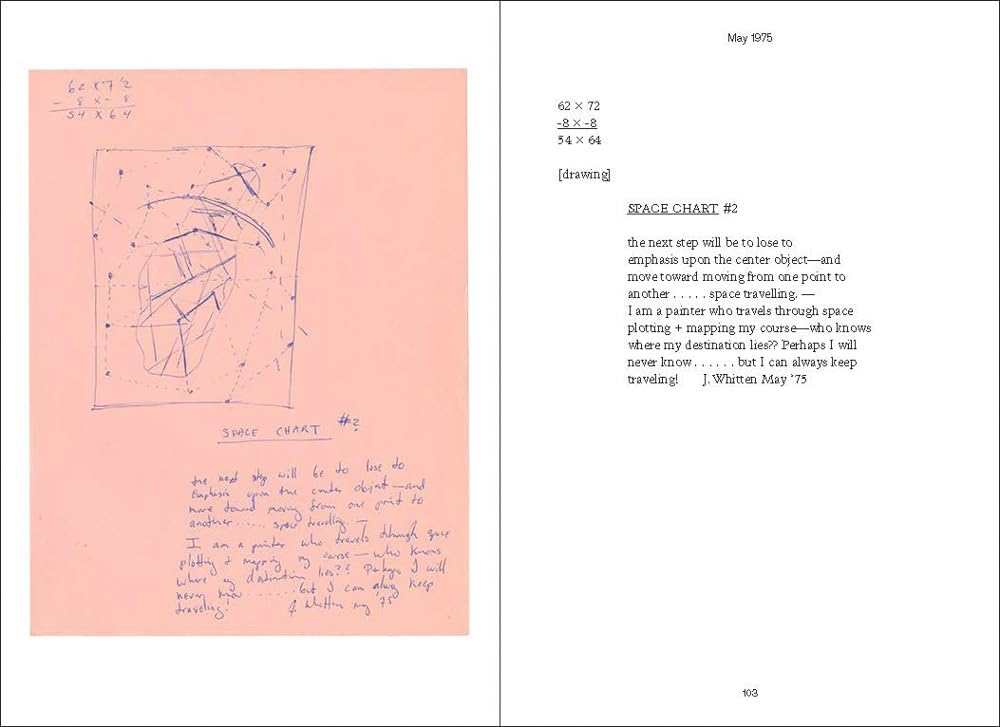 62 X 72
- 8 X - 8
54 X 64
SPACE CHART #2
the next step will be to lose to
emphasis upon the center object—and
move toward moving from one point to
another ...... space travelling. —
I am a painter who travels through space
plotting + mapping my course — who knows
where my destination lies?? Perhaps I will
never know ....... but I can always keep
traveling! J. Whitten May '75
May 1975
62 × 72
-8 × -8
54 × 64
[drawing]
SPACE CHART #2
the next step will be to lose to
emphasis upon the center object—and
move toward moving from one point to
another . . . . . space travelling. —
I am a painter who travels through space
plotting + mapping my course—who knows
where my destination lies?? Perhaps I will
never know . . . . . . but I can always keep
traveling! J. Whitten May ’75
103